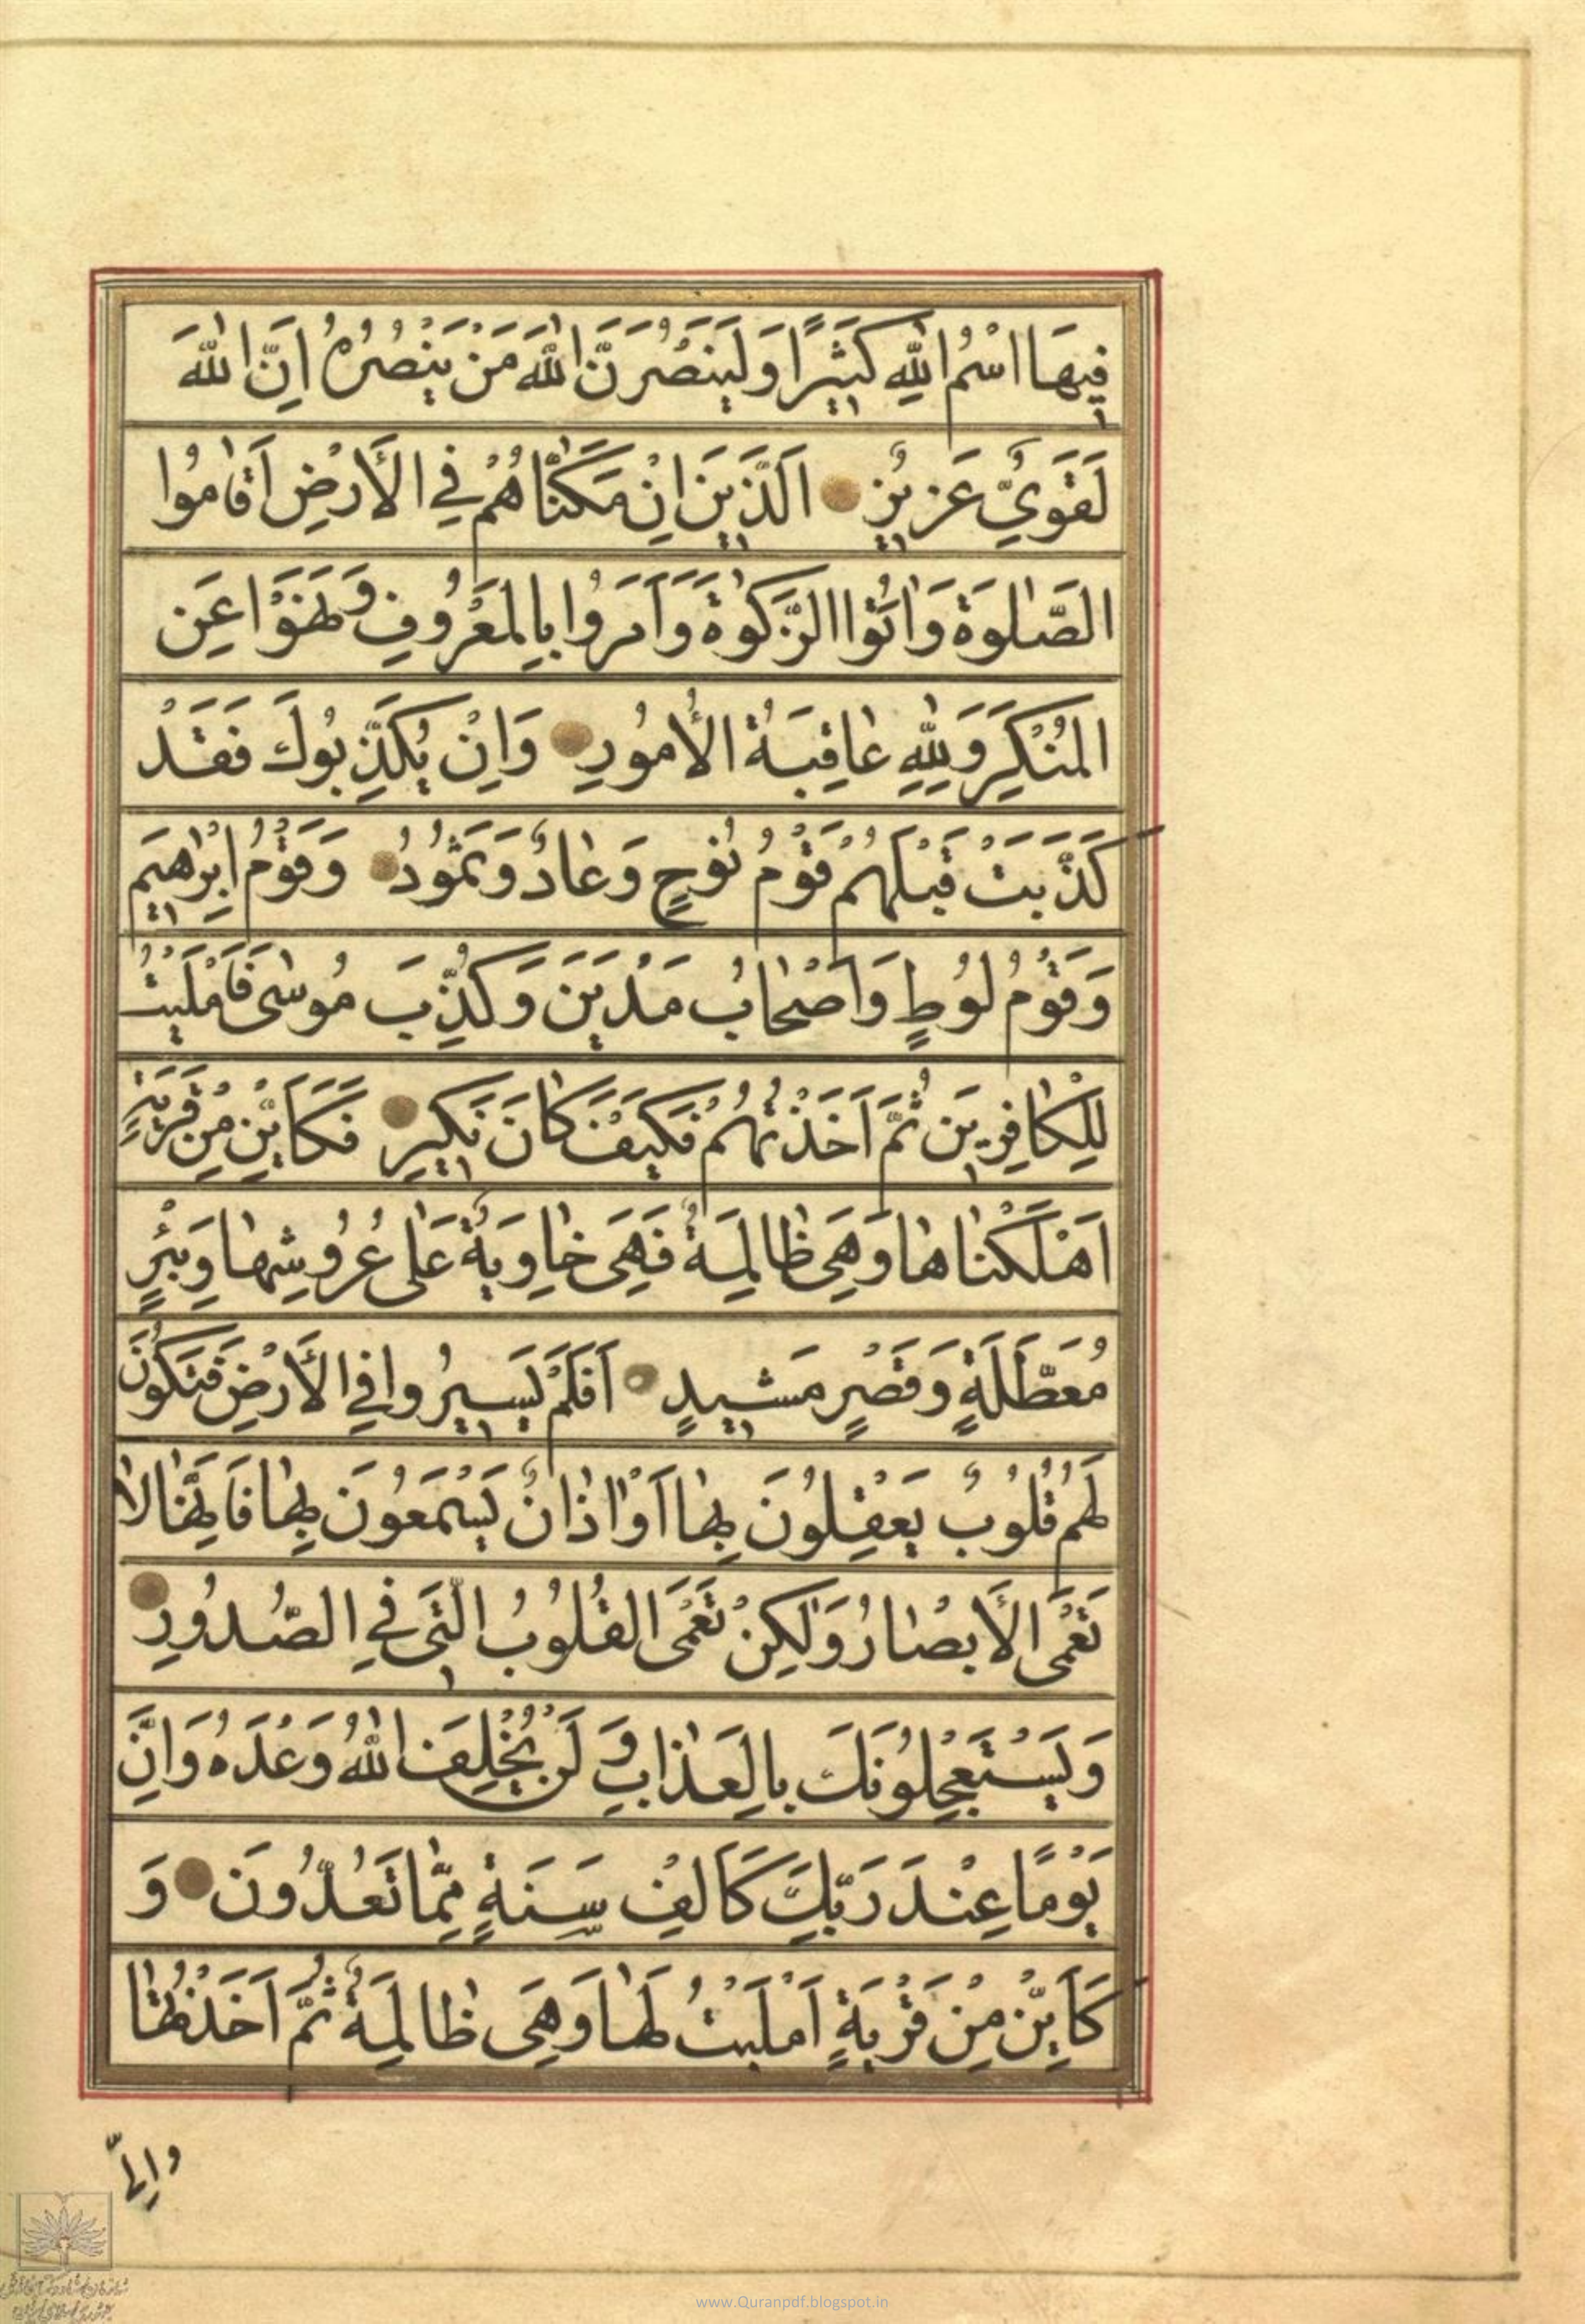 فِيهَا اسْمُ اللّٰهِ كَثِيرًا وَلَيَنْصُرَنَّ اللّٰهَ مَنْ يَنْصُرُهُ اِنَّ اللّٰهَ
لَقَوِيٌّ عَزِيزٌ اَلَّذِينَ اِنْ مَكَّنّٰاهُمْ فِي الْأَرْضِ اَقٰامُوا
الصَّلٰوةَ وَاٰتَوُا الزَّكٰوةَ وَاَمَرُوا بِالْمَعْرُوفِ وَنَهَوْا عَنِ
الْمُنْكَرِ وَلِلّٰهِ عٰاقِبَةُ الْأُمُورِ وَاِنْ يُكَذِّبُوكَ فَقَدْ
كَذَّبَتْ قَبْلَهُمْ قَوْمُ نُوحٍ وَعٰادٌ وَثَمُودُ وَقَوْمُ اِبْرٰهِيمَ
وَقَوْمُ لُوطٍ وَاَصْحٰابُ مَدْيَنَ وَكُذِّبَ مُوسٰى فَاَمْلَيْتُ
لِلْكٰافِرِينَ ثُمَّ اَخَذْتُهُمْ فَكَيْفَ كٰانَ نَكِيرِ فَكَاَيِّنْ مِنْ قَرْيَةٍ
اَهْلَكْنٰاهٰا وَهِيَ ظٰالِمَةٌ فَهِيَ خٰاوِيَةٌ عَلٰى عُرُوشِهٰا وَبِئْرٍ
مُعَطَّلَةٍ وَقَصْرٍ مَشِيدٍ اَفَلَمْ يَسِيرُوا فِي الْأَرْضِ فَتَكُونَ
لَهُمْ قُلُوبٌ يَعْقِلُونَ بِهٰا اَوْ اٰذٰانٌ يَسْمَعُونَ بِهٰا فَاِنَّهٰا لٰا
تَعْمَى الْأَبْصٰارُ وَلٰكِنْ تَعْمَى الْقُلُوبُ الَّتِي فِي الصُّدُورِ
وَيَسْتَعْجِلُونَكَ بِالْعَذٰابِ وَلَنْ يُخْلِفَ اللّٰهُ وَعْدَهُ وَاِنَّ
يَوْمًا عِنْدَ رَبِّكَ كَاَلْفِ سَنَةٍ مِمّٰا تَعُدُّونَ وَ
كَاَيِّنْ مِنْ قَرْيَةٍ اَمْلَيْتُ لَهٰا وَهِيَ ظٰالِمَةٌ ثُمَّ اَخَذْتُهٰا
وَاِلَيَّ
www.Quranpdf.blogspot.in